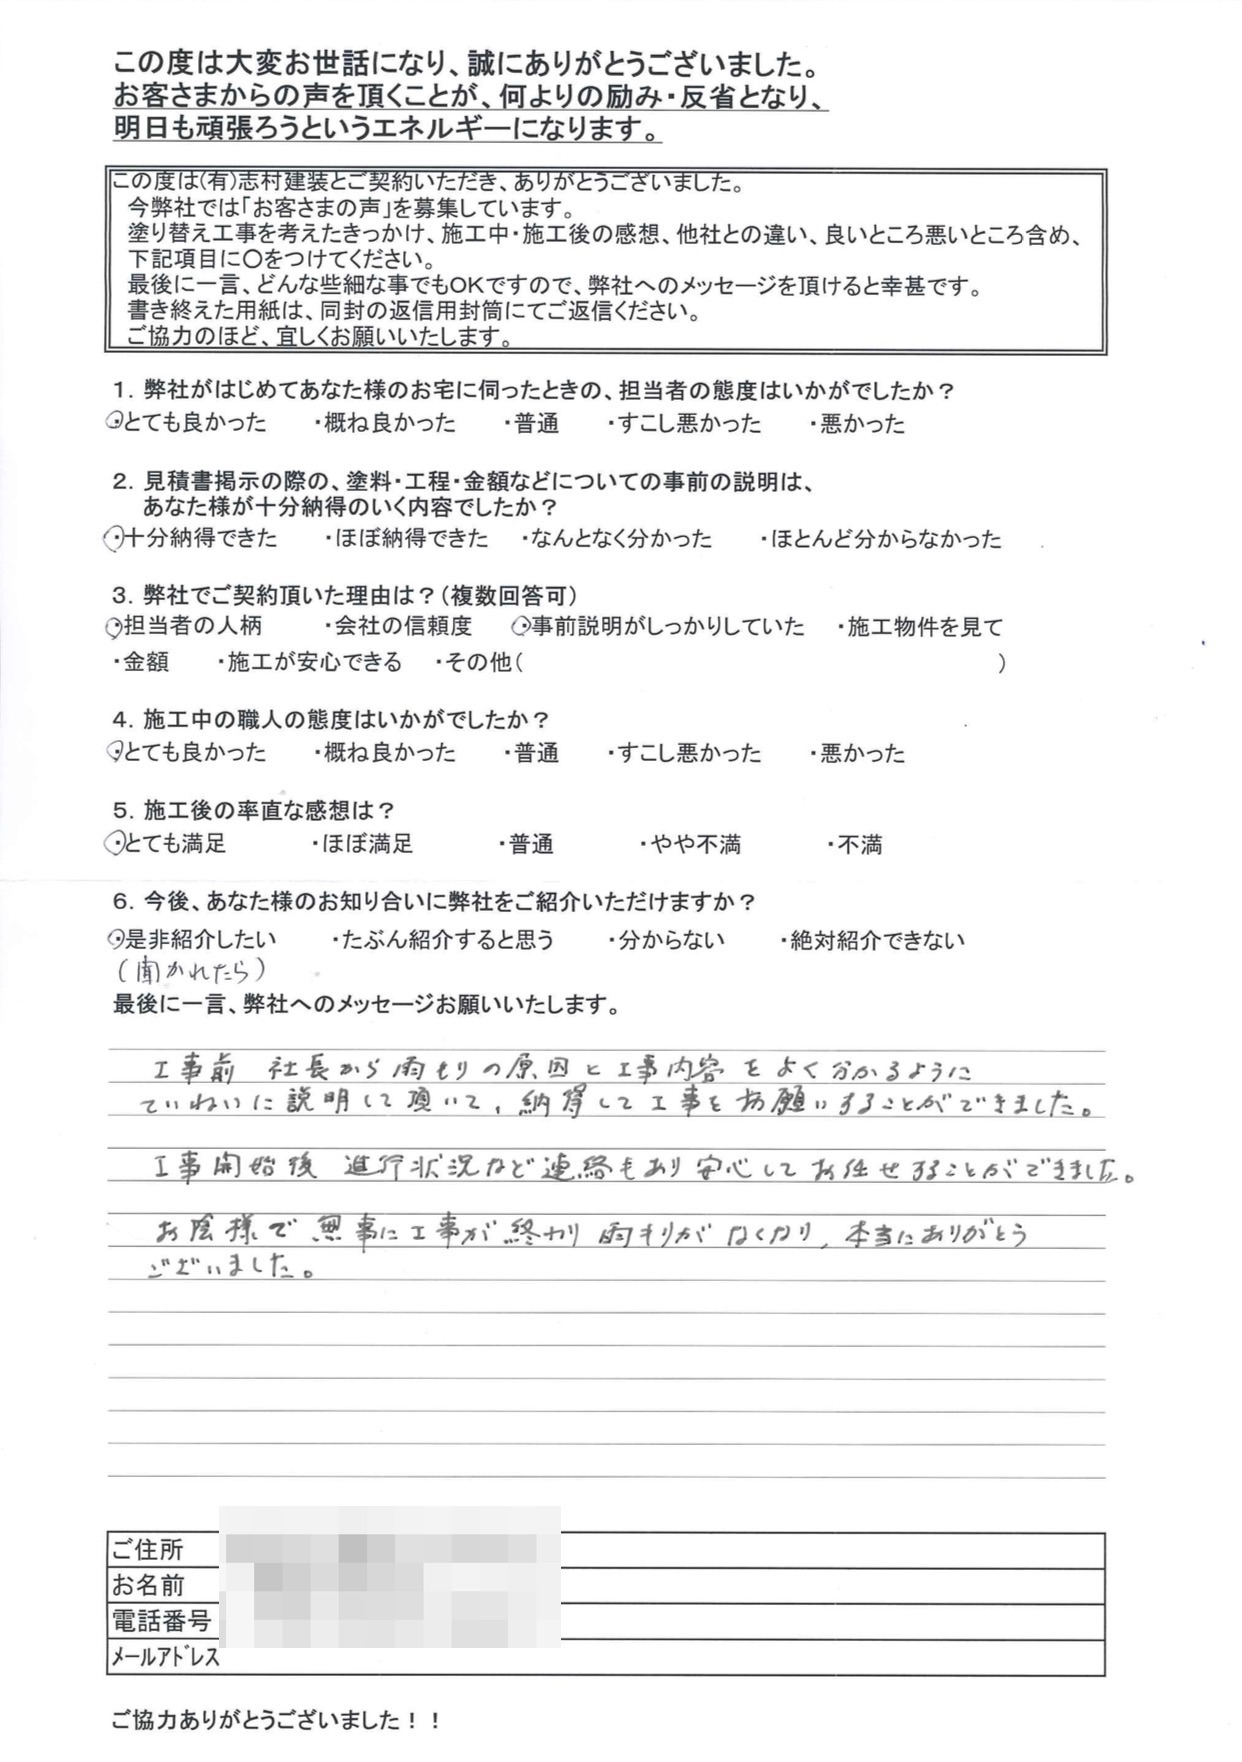 この度は大変お世話になり、誠にありがとうございました。
お客さまからの声を頂くことが、何よりの励み・反省となり、
明日も頑張ろうというエネルギーになります。
この度は(有)志村建装とご契約いただき、ありがとうございました。
今弊社では「お客さまの声」を募集しています。
塗り替え工事を考えたきっかけ、施工中・施工後の感想、他社との違い、良いところ悪いところ含め、
下記項目に○をつけてください。
最後に一言、どんな些細な事でもOKですので、弊社へのメッセージを頂けると幸甚です。
書き終えた用紙は、同封の返信用封筒にてご返信ください。
ご協力のほど、宜しくお願いいたします。
1. 弊社がはじめてあなた様のお宅に伺ったときの、担当者の態度はいかがでしたか？
・とても良かった ・概ね良かった ・普通 ・すこし悪かった ・悪かった
2. 見積書掲示の際の、塗料・工程・金額などについての事前の説明は、
あなた様が十分納得のいく内容でしたか？
・十分納得できた ・ほぼ納得できた ・なんとなく分かった ・ほとんど分からなかった
3. 弊社でご契約頂いた理由は？(複数回答可)
・担当者の人柄 ・会社の信頼度 ・事前説明がしっかりしていた ・施工物件を見て
・金額 ・施工が安心できる ・その他( )
4. 施工中の職人の態度はいかがでしたか？
・とても良かった ・概ね良かった ・普通 ・すこし悪かった ・悪かった
5. 施工後の率直な感想は？
・とても満足 ・ほぼ満足 ・普通 ・やや不満 ・不満
6. 今後、あなた様のお知り合いに弊社をご紹介いただけますか？
・是非紹介したい ・たぶん紹介すると思う ・分からない ・絶対紹介できない
(聞かれたら)
最後に一言、弊社へのメッセージお願いいたします。
工事前 社長から雨もりの原因と工事内容をよく分かるように
ていねいに説明して頂いて、納得して工事をお願いすることができました。
工事開始後 進行状況など連絡もあり安心してお任せすることができました。
お陰様で無事に工事が終わり雨もりがなくなり、本当にありがとう
ございました。
ご住所
お名前
電話番号
メールアドレス
ご協力ありがとうございました！！